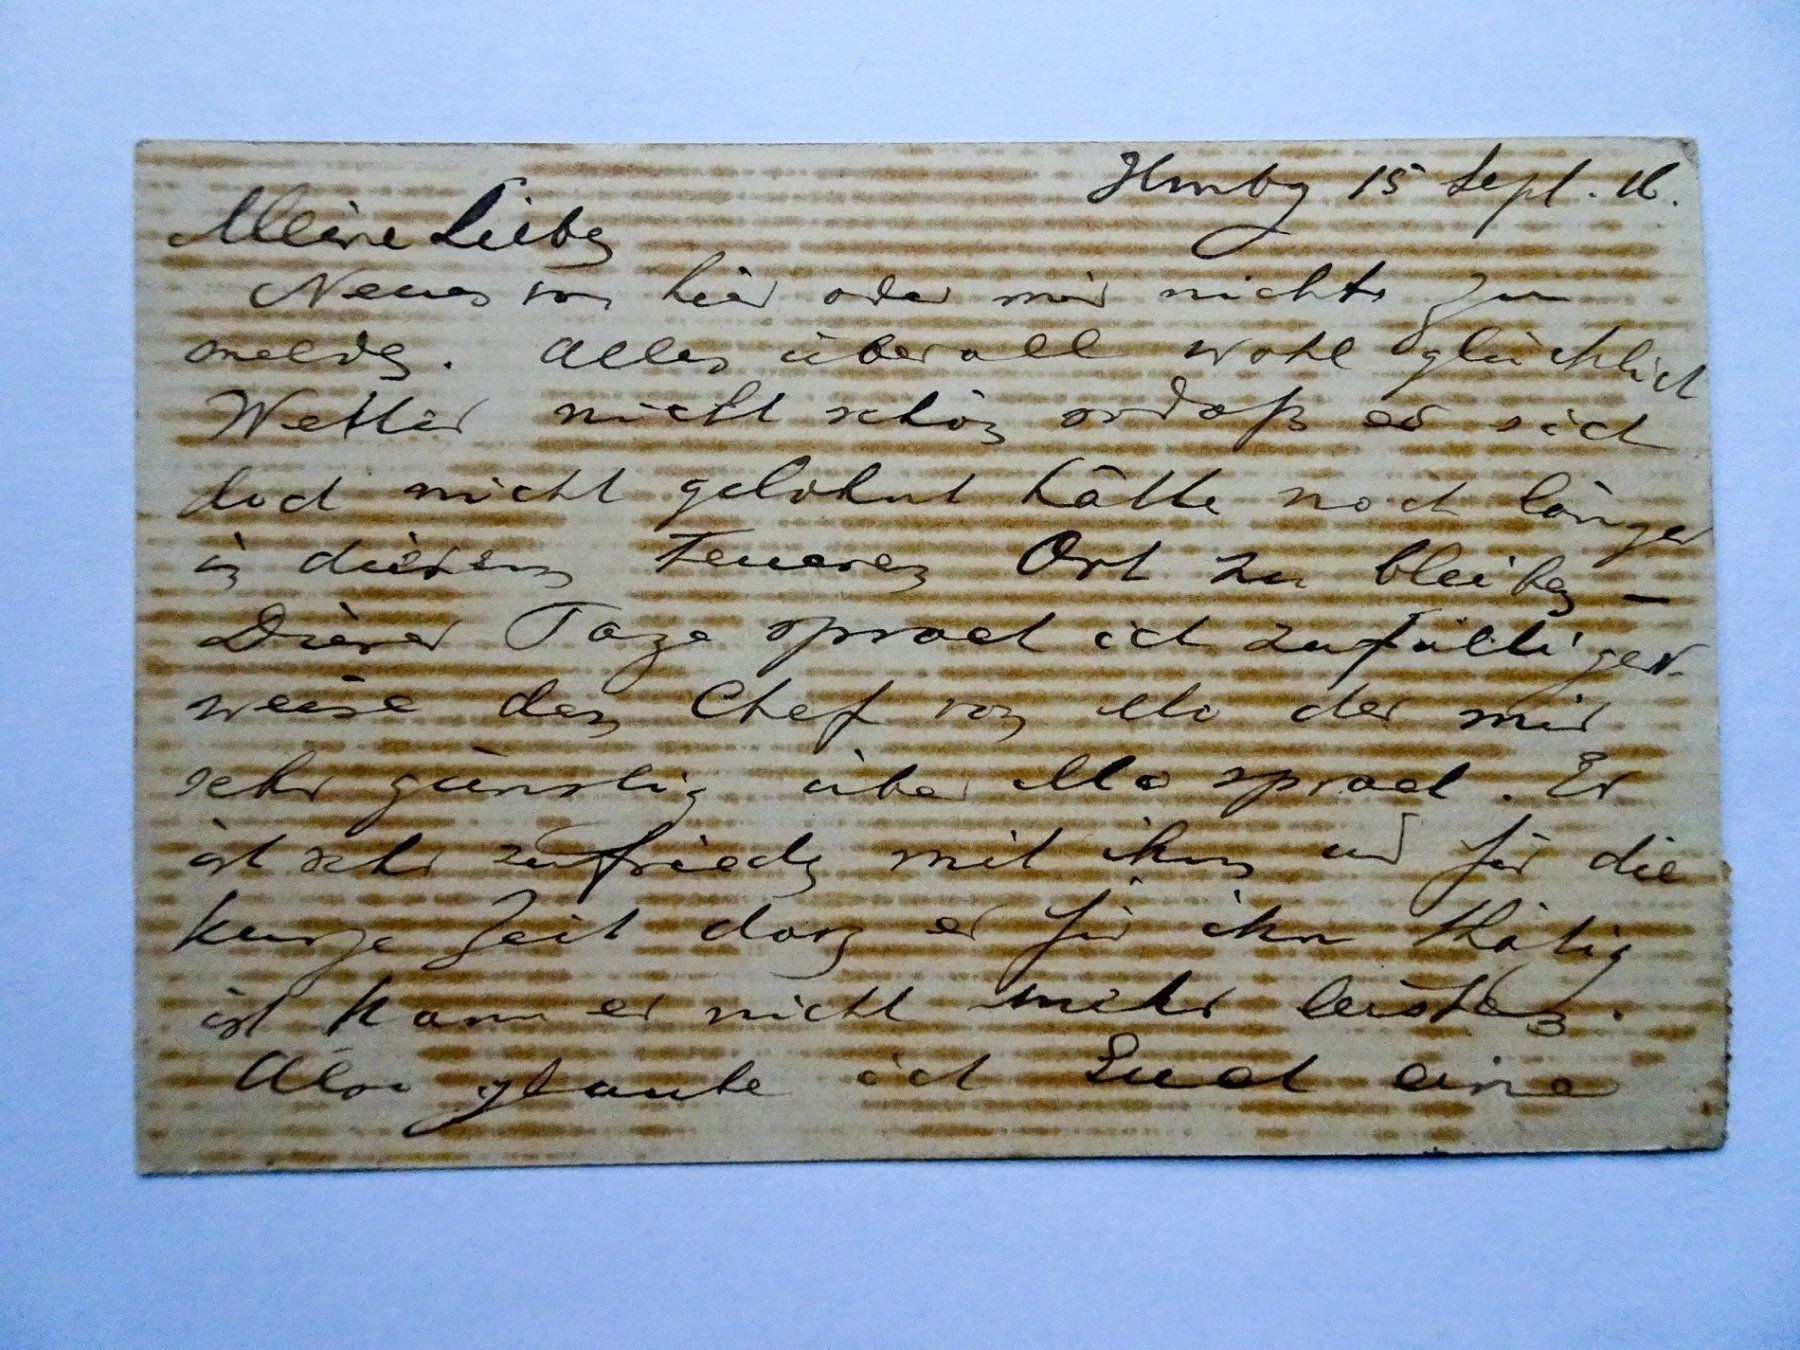 Hmbg 15 Sept. 16.
Meine Lieben
Neues von hier oder mir nichts zu
melden. Alles überall wohl glücklich
Wetter nicht schön sodaß es sich
doch nicht gelohnt hätte noch länger
in diesem teueren Ort zu bleiben –
Dieser Tage sprach ich zufälliger
weise den Chef von Mo der mir
sehr günstig über Mo sprach. Er
ist sehr zufrieden mit ihm und für die
kurze Zeit dass er für ihn thätig
ist kann er nicht mehr leisten.
Also glaube ich Euch eine